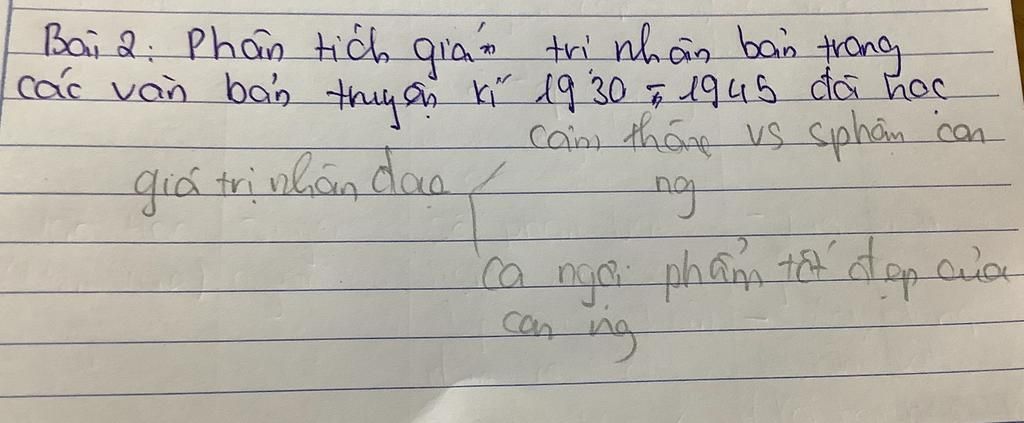 Bài 2: Phân tích giá trị nhân bản trong
các văn bản truyện kí 1930 - 1945 đã học
cảm thông vs sphận con
giá trị nhân đạo
ng
ca ngợi phẩm tốt đẹp của
con ng